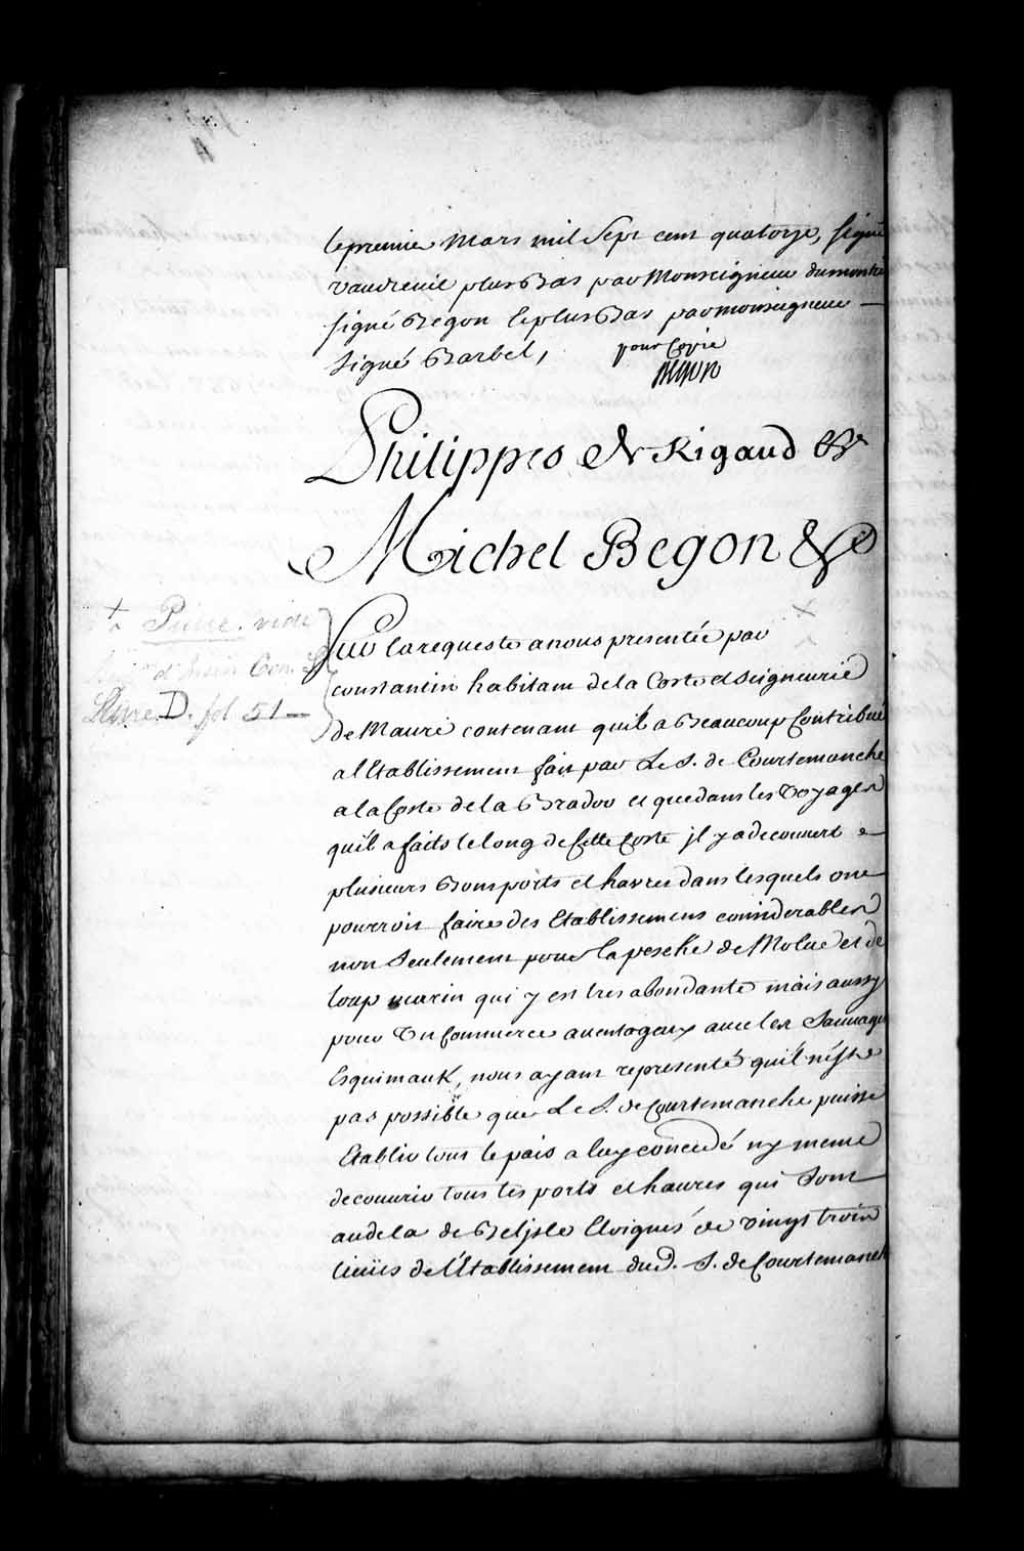 le premier Mars mil Sept cent quatorze, signé
Vaudreuil plus Bas par Monseigneur
signé Begon et plus Bas par monseigneur —
signé Barbel,
pour Copie
Begon
Philippes de Rigaud &c
Michel Begon &c
Sur la requeste a nous presentée par
constantin habitant de la Coste et Seigneurie
de Maure contenant qu'il a Beaucoup Contribué
a l'Etablissement fait par Le S. de Courtemanche
a la Coste de la Brador et que dans les Voyages
qu'il a faits le long de cette Coste il y a decouvert
plusieurs Bons ports et havres dans lesquels on
pourroit faire des Etablissemens considerables
non Seulement pour la pesche de Molue et de
loup marin qui y est tres abondante mais aussy
pour Un Commerce auentageux auec les Sauuages
Esquimaux, nous ayant representé qu'il n'est
pas possible que Le S. de Courtemanche puisse
Etablir tout le pais a luy concedé ny meme
decouurir tous les ports et haures qui Sont
audela de Belisle Eloignés de vingt trois
lieües de l'Etablissement dud. S. de Courtemanche
+ vide
D. fol 51 —